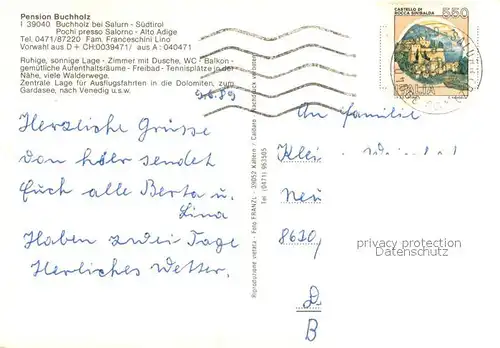 Pension Buchholz
I 39040 Buchholz bei Salurn - Südtirol
Pochi presso Salorno - Alto Adige
Tel. 0471/87220 Fam. Franceschini Lino
Vorwahl aus D + CH:0039471/ aus A : 040471
Ruhige, sonnige Lage - Zimmer mit Dusche, WC - Balkon -
gemütliche Aufenthaltsräume - Freibad - Tennisplätze in der
Nähe, viele Walderwege.
Zentrale Lage für Ausflugsfahrten in die Dolomiten, zum
Gardasee, nach Venedig u.s.w.
9.6.89
Herzliche Grüsse
von hier sendet
Euch alle Berta u.
Lina
Haben zwei Tage
Herrliches Wetter.
Riproduzione vietata - Foto FRANZL - 39052 Kaltern / Caldaro - Nachdruck verboten
Tel (0471) 963505
CASTELLO DI
ROCCA SINIBALDA
550
ITALIA
An Familie
Neu
8620
D
B
privacy protection
Datenschutz